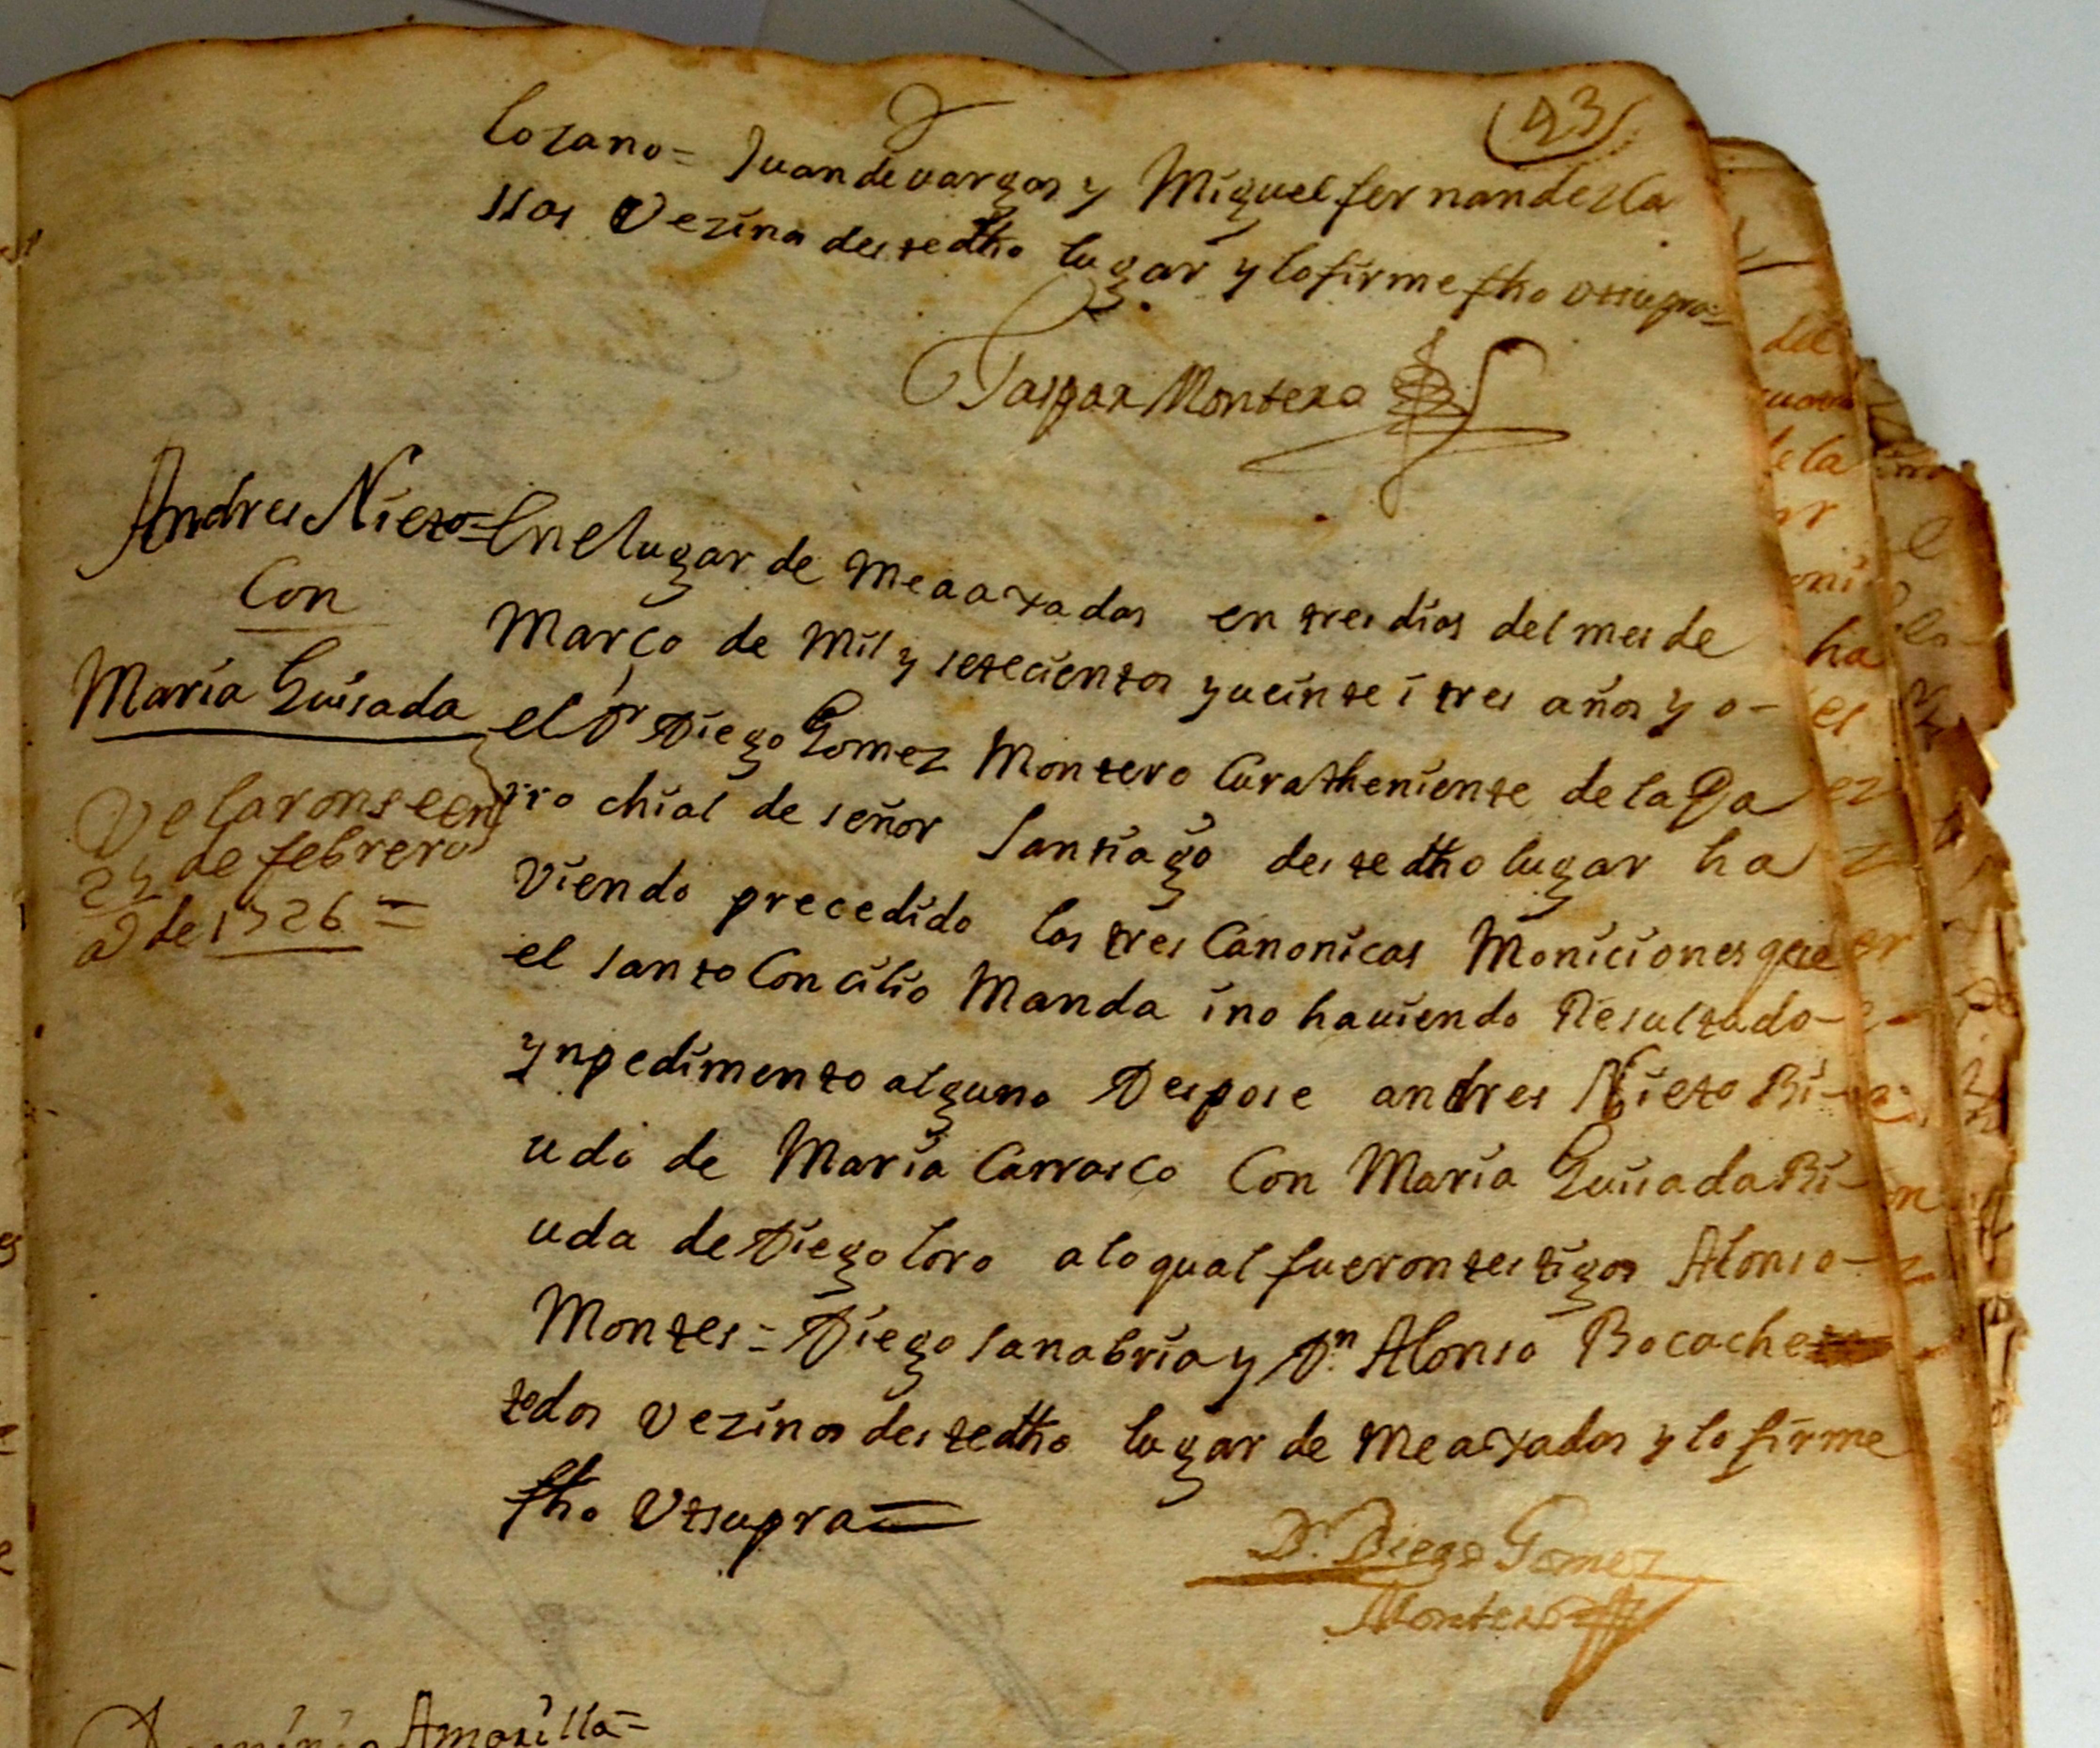 43
lozano = Juan de vargas y Miguel fernandez la
ssos Vezinos destedho lugar y lo firme fho vtsupra =
Gaspar Montero
Andres Nieto =
Con
Maria Guisada
Velaronse en
24 de febrero
a de 1726 =
En el lugar de Meaaxadas en tres dias del mes de
Março de Mil y setecientos y ueinte i tres años y o-
el Dr Diego Gomez Montero Cura theniente de la Pa
rro chial de señor Santiago destedho lugar ha
viendo precedido las tres Canonicas Moniciones que
el santo Concilio Manda i no hauiendo Resultado-
ynpedimento alguno Despose andres Nieto Bi-
udo de Maria Carrasco Con Maria Guisada Bi-
uda de Diego loro a lo qual fueron testigos Alonso-
Montes = Diego sanabria y Dn Alonso Bocache
todos vezinos destedho lugar de Meaxadas y lo firme
fho Vtsupra =
Dr. Diego Gomez
Montero
Amarilla =